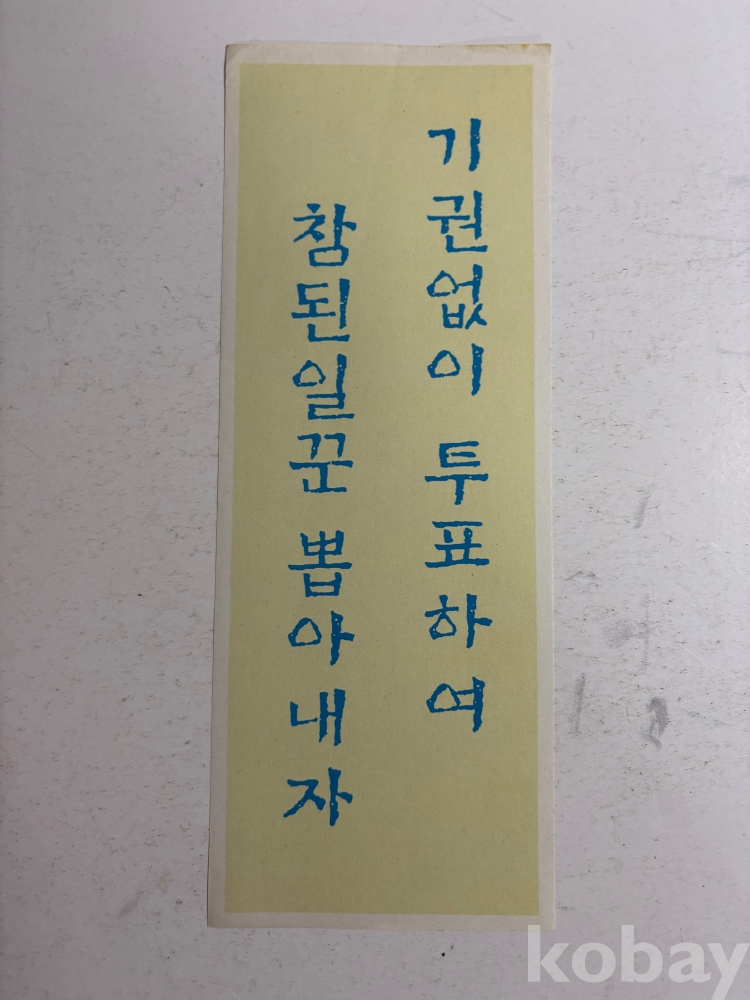 기권없이 투표하여
참된일꾼 뽑아내자
kobay